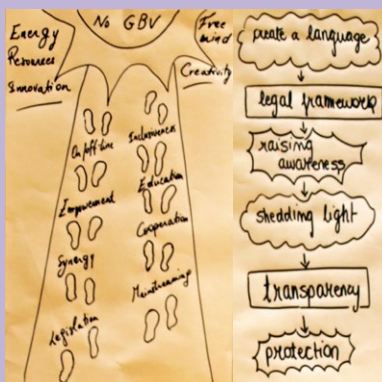 No GBV
Energy
Resources
Innovation
Free
mind
Creativity
On/off-line
Inclusiveness
Empowerment
Education
Synergy
Cooperation
Legislation
Mainstreaming
create a language
legal framework
raising
awareness
shedding light
transparency
protection